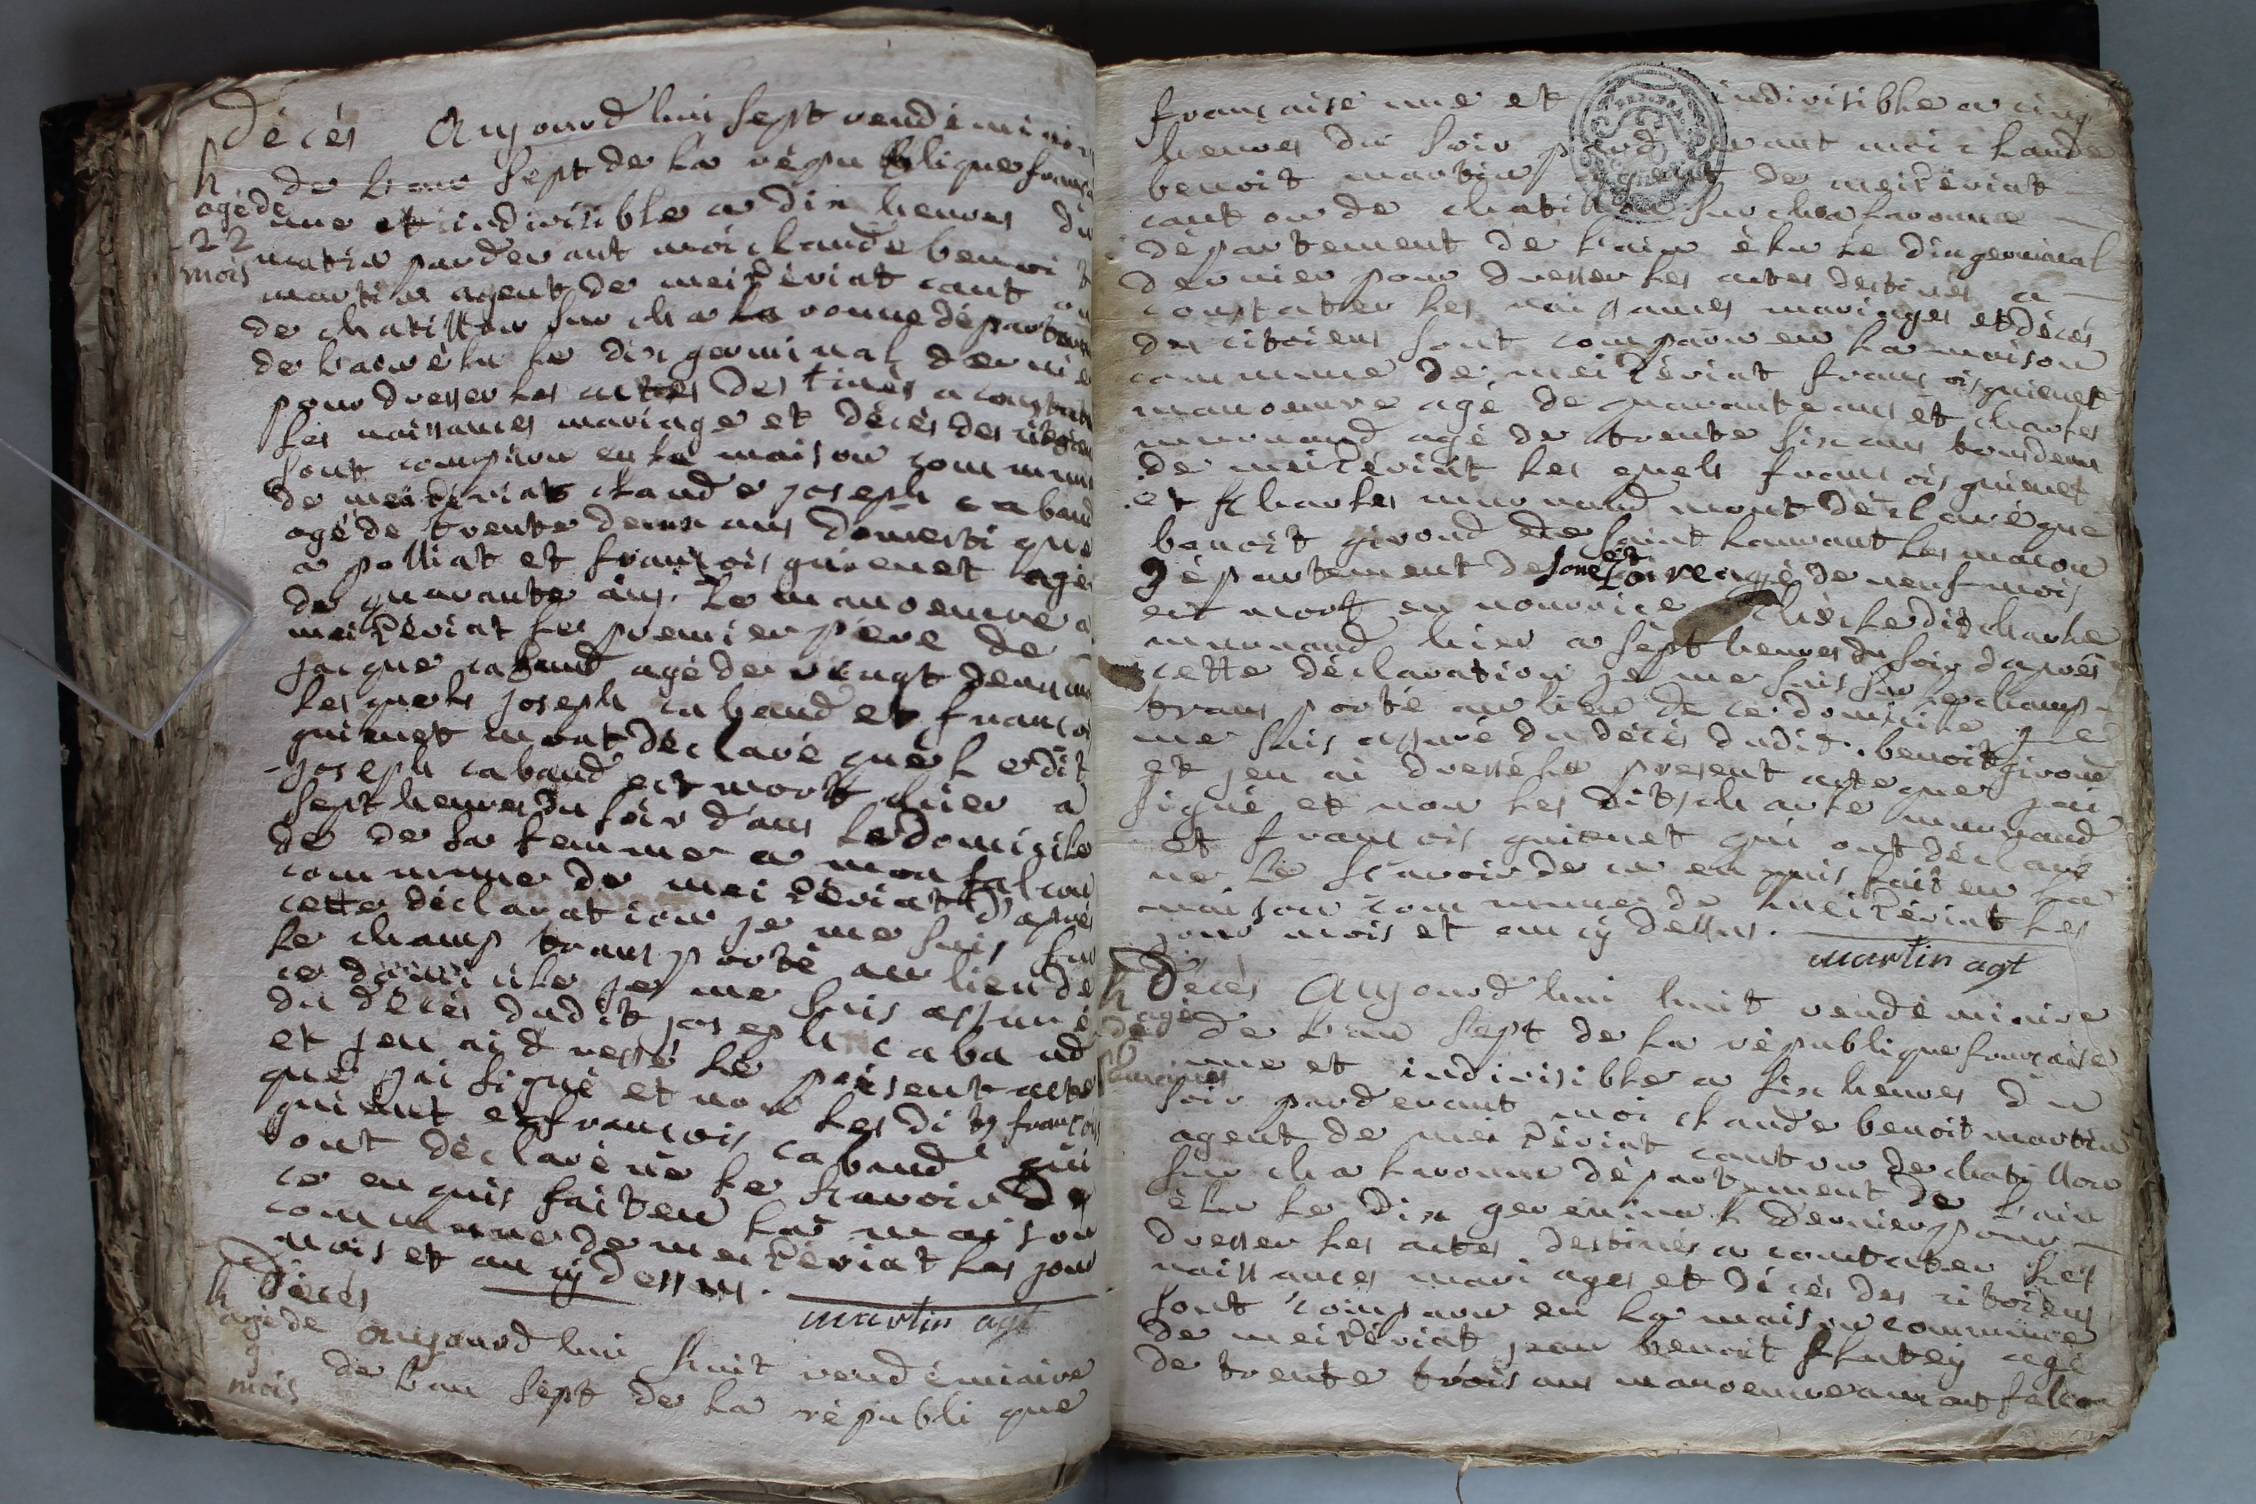 Décès Aujourd hui sept vendémiair
h de lan sept de la république français
agé de une et indivisible a dix heures du
22 matin parderant moi claude benoit
mois martin agent de meizériat cant on
de chatillon sur cha la ronne départem
de lain élu le dix germinal dernie
pour dresser les actes destinés a constater
les naissances mariage et décès des citoyen
sont comparu en la maison commune
de meizériat claude joseph caband
agé de trente deux ans domestique
a polliat et françois guienet agé
de quarante ans le manoeuvre a
meizériat le premier père de
jacque caband agé de vingt deux mois
les quels joseph caband et françois
guienet mont déclaré que le dit
joseph caband est mort hier a
sept heures du soir dans le domicile
de de la femme a monfalcon
commune de meizériat d'après
cette déclaration je me suis sur
le champ transporté au lieu de
ce domicile je me suis assuré
du décès dudit joseph caband
et jen ai dressé le présent acte
que jai signé et non les dits françois
guienet et françois caband qui
ont déclaré ne le scavoir de
ce enquis fait en la maison
commune de meizériat les jour
mois et an cy dessus.
martin agt
Décès
h
agé de Aujourd hui huit vendémiaire
9 de lan sept de la république
mois
française une et indivisible a cinq
heures du soir pard vant moi claude
benoit martin agent de meizériat
canton de chatillon sur cha laronne
département de lain élu le dix germinal
dernier pour dresser les actes destinés a
constater les naissances mariages et décès
des citoiens sont comparu en la maison
commune de meizériat françois guienet
manoeuvre agé de quarante ans et charles
murnand agé de trente six ans tous deux
de meizériat les quels françois guienet
et charles murnand mont déclaré que
benoit girond de saint laurant les macon
département de sone et Loire agé de neuf mois
est mort en nourrice chés le dit charle
murnand hier a sept heures du soir daprés
cette déclaration je me suis sur le champ
transporté au lieu de ce domicile je
me suis assuré du décés dudit benoit girond
et jen ai dressé le present acte que jai
signé et non les dits charle murnand
et françois guienet qui ont déclaré
ne le scavoir de ce enquis fait en la
maison commune de meizériat les
jour mois et an cy dessus.
martin agt
Décès Aujourd hui huit vendémiaire
h agé de lan sept de la république française
de
une et indivisible a six heures du
semaines
soir parderant moi claude benoit martin
agent de meizériat canton de chatillon
sur cha laronne département de l'ain
élu le dix germinal dernier pour
dresser les actes destinés a contater les
naissances mariages et décès des citoiens
sont comparu en la maison commune
de meizériat jean benoit agé
de trente trois ans manoeuvre a montfalcon